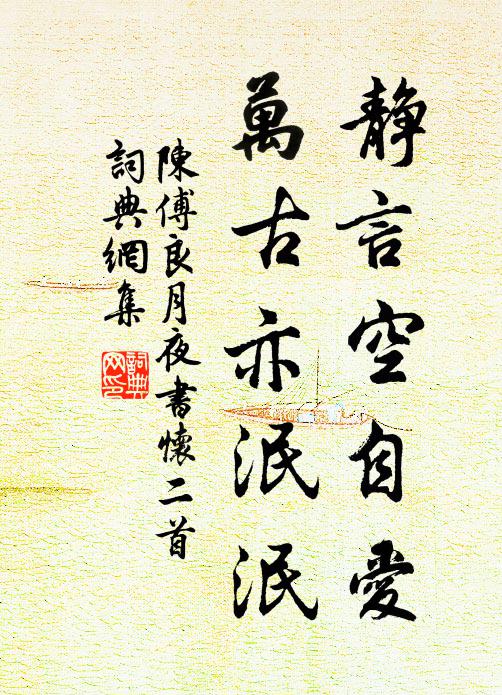 静言空自愛
萬古亦泯泯
陳傅良月夜書懷二首
詞典網集
詞典网印